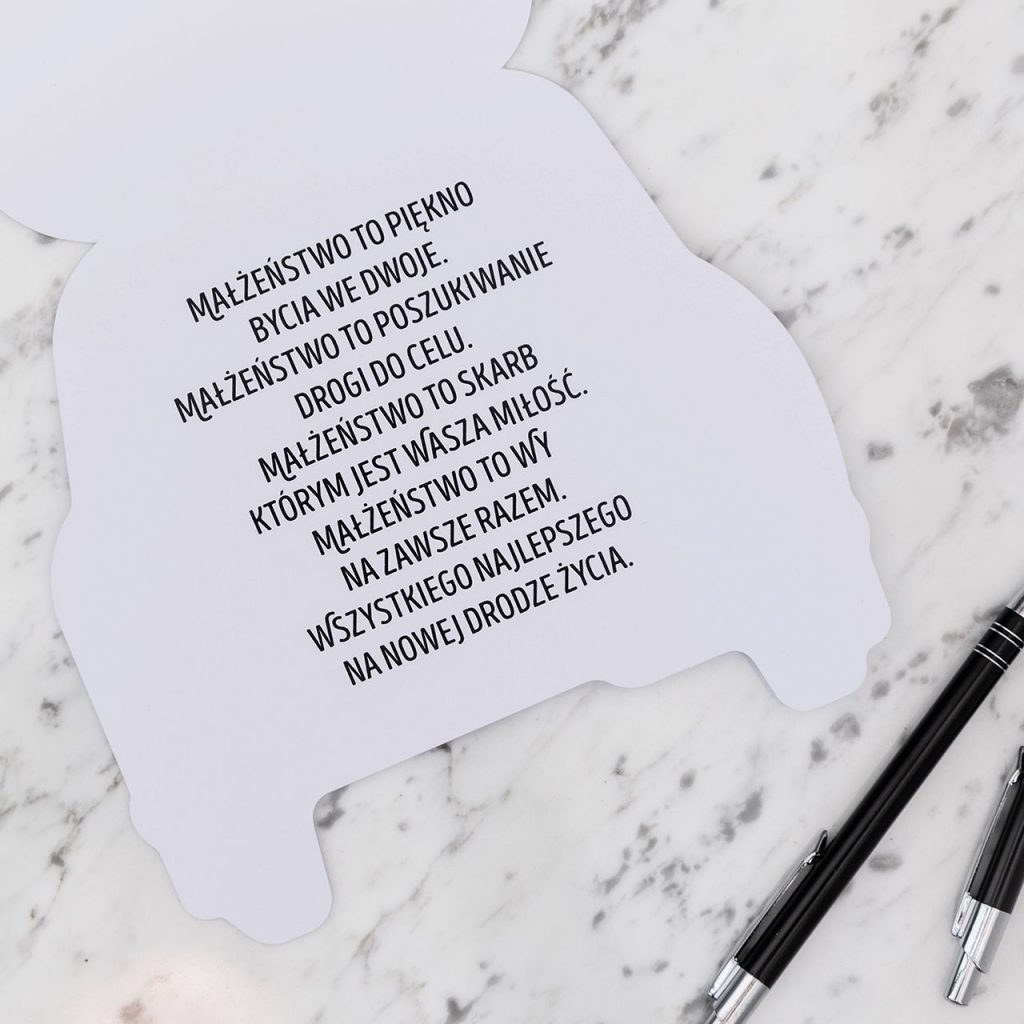 MAŁŻEŃSTWO TO PIĘKNO
BYCIA WE DWOJE.
MAŁŻEŃSTWO TO POSZUKIWANIE
DROGI DO CELU.
MAŁŻEŃSTWO TO SKARB
KTÓRYM JEST WASZA MIŁOŚĆ.
MAŁŻEŃSTWO TO WY
NA ZAWSZE RAZEM.
WSZYSTKIEGO NAJLEPSZEGO
NA NOWEJ DRODZE ŻYCIA.